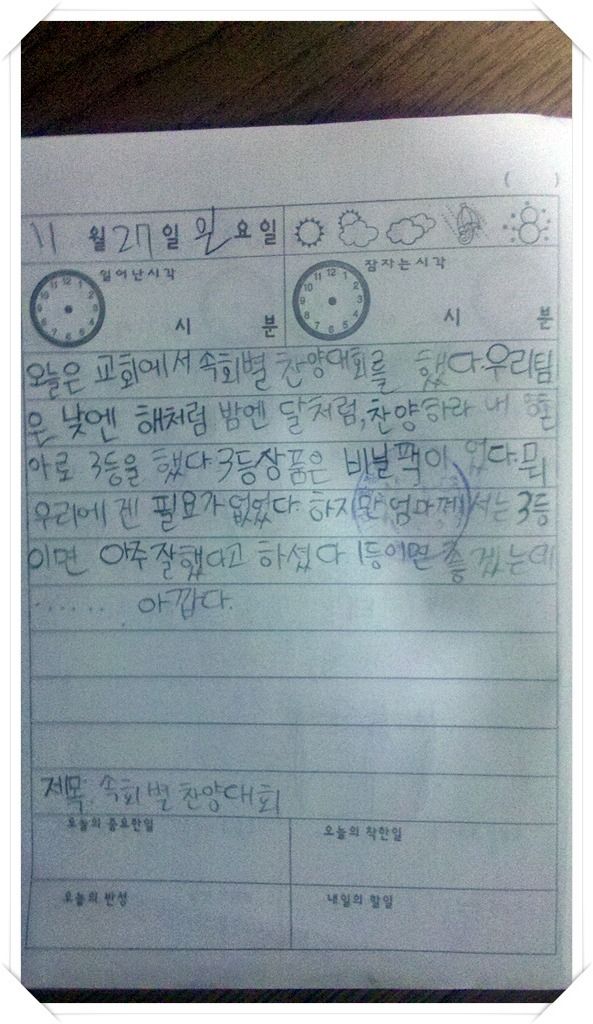 ( )
11 월 27 일 일 요일
일어난시각
잠자는시각
시 분
시 분
오늘은 교회에서 속회별 찬양대회를 했다. 우리팀
은 낮엔 해처럼 밤엔 달처럼, 찬양하라 내 영혼
아로 3등을 했다. 3등상품은 비닐팩이 었다. 뭐
우리에 겐 필요가 없었다. 하지만 엄마께서는 3등
이면 아주 잘했다고 하셨다 1등이면 좋겠는데
...... 아깝다.
제목: 속회별 찬양대회
오늘의 중요한일
오늘의 착한일
오늘의 반성
내일의 할일